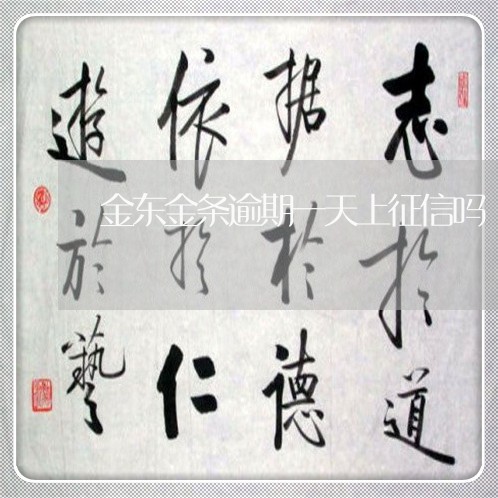 志於道
据於德
依於仁
遊於藝
金东金条逾期一天上征信吗